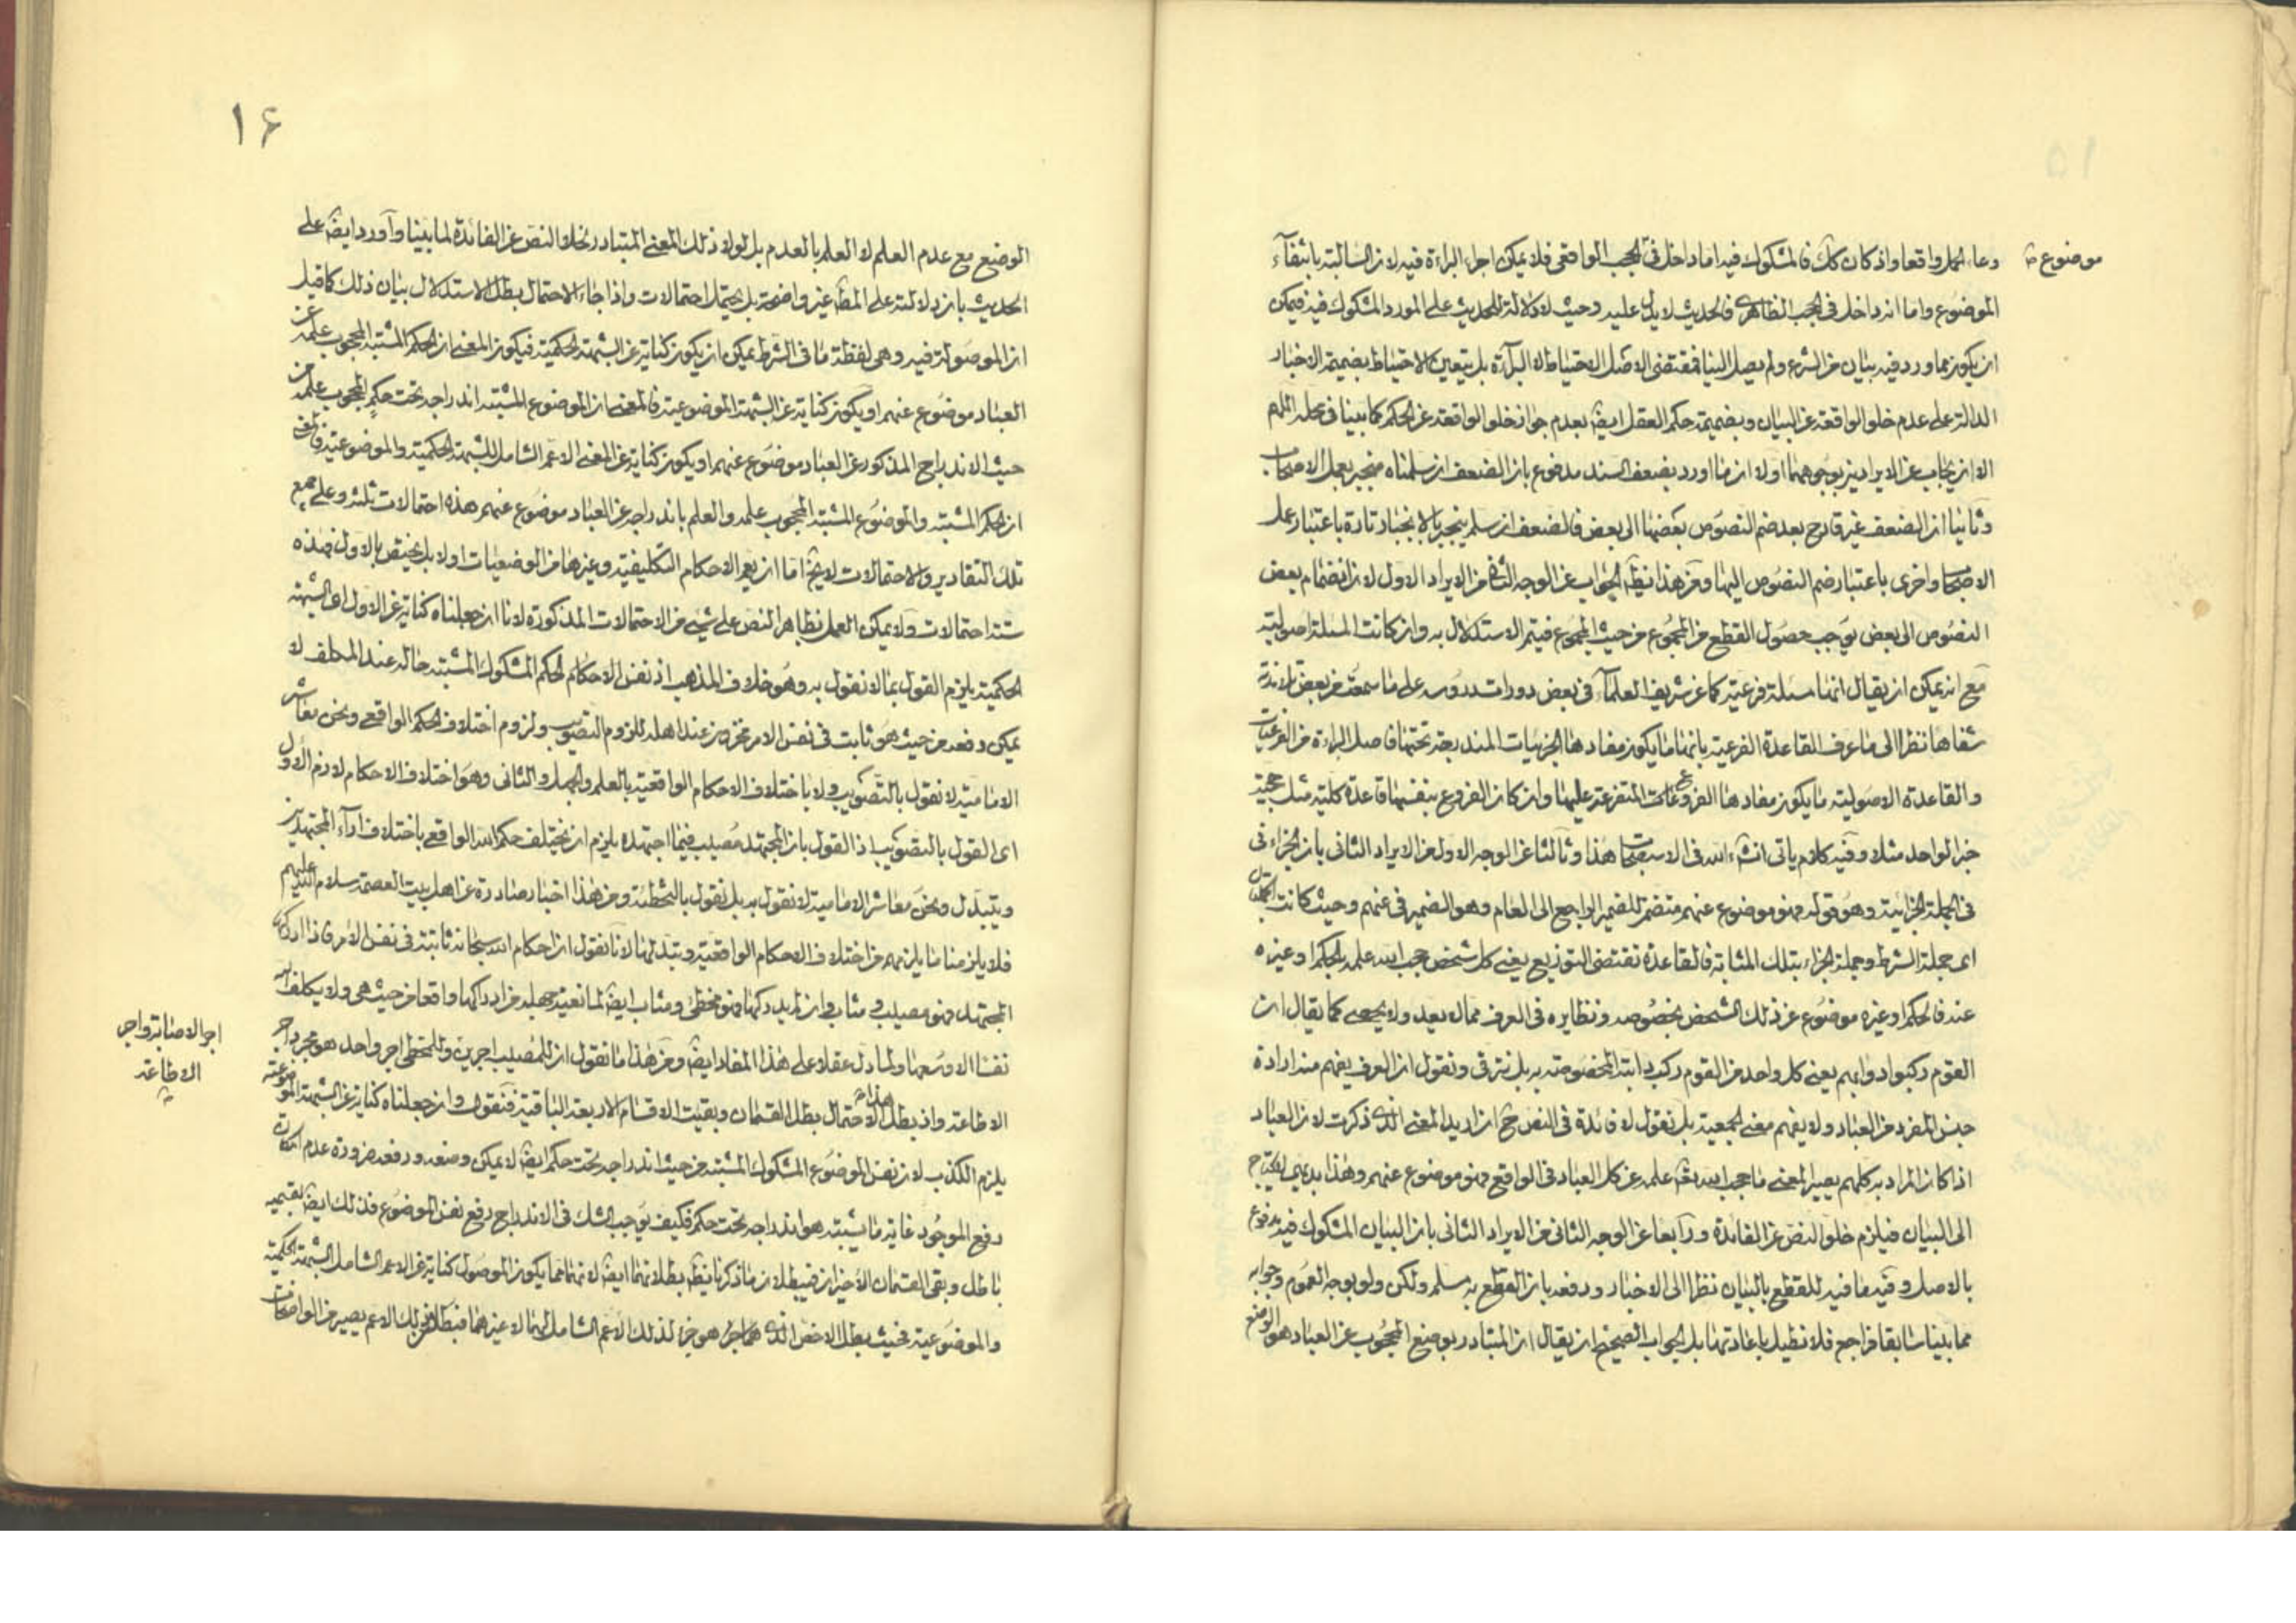 موضوع
دعاء الجمل واقعا واذ كان كك فالمشكوك فيه اما داخل فى الحجب الواقعى فلا يمكن اجراء البراءة فيه لان السالبة بانتفآء
الموضوع واما انه داخل فى الحجب الظاهرى فالحديث لا يدل عليه وحيث لا دلالة للحديث على المورد المشكوك فيه فيمكن
ان يكون مما ورد فيه بيان من الشرع ولم يصل الينا فمقتضى الاصل الاحتياط لا البرآءة بل يتعين الاحتياط بضميمة الاخبار
الدالة على عدم خلو الواقعة عن البيان وبضميمة حكم العقل ايضا بعدم جواز خلو الواقعة عن الحكم كما بينا فى محله اللهم
الا ان يجاب عن الايرادين بوجوه منها اولا ان ما اورد بضعف السند مدفوع بان الضعف ان سلمناه منجبر بعمل الاصحاب
وثانيا ان الضعف غير قادح بعد ضم النصوص بعضها الى بعض فالضعف ان سلم ينجبر بالانجبار تارة باعتبار عمل
الاصحاب واخرى باعتبار ضم النصوص اليها ومن هذا يظهر الجواب عن الوجه الثانى من الايراد الاول لان انضمام بعض
النصوص الى بعض يوجب حصول القطع من المجموع من حيث المجموع فيتم الاستدلال به وان كانت المسئلة اصولية
مع انه يمكن ان يقال انها مسئلة فرعية كما عن شريف العلمآء فى بعض دورات دروسه على ما سمعت من بعض تلامذته
شفاها نظرا الى ما عرف القاعدة الفرعية بانها ما يكون مفادها الجزئيات المندرجة تحتها فاصل البراءة من الفرعيات
والقاعدة الاصولية ما يكون مفادها الفروعات المتفرعة عليها وان كان الفروع بنفسها قاعدة كلية مثل حجية
خبر الواحد مثلا وفيه كلام ياتى انشاء الله فى الاستصحاب هذا وثالثا عن الوجه الاول من الايراد الثانى بان الجزاء فى
فى الجملة الجزائية وهو قوله فهو موضوع عنهم متضمن للضمير الراجع الى العام وهو الضمير فى عنهم وحيث كانت الجملتان
اى جملة الشرط وجملة الجزاء بتلك المثابة فالقاعدة تقتضى التوزيع يعنى كل شخص حجب الله علمه بالحكم او غيره
عنه فالحكم او غيره موضوع عن ذلك الشخص بخصوصه ونظايره فى العرف مما لا يعد ولا يحصى كما يقال ان
القوم ركبوا دوابهم يعنى كل واحد من القوم ركب دابته المخصوصة به بل نترقى ونقول ان العرف يفهم منه ارادة
جنس المفرد من العباد ولا يفهم معنى الجمعية بل نقول لا فائدة فى النص ح ان اريد المعنى الذى ذكرت لان العباد
اذا كان المراد به كلهم يصير المعنى ما حجب الله تعالى علمه عن كل العباد فى الواقع فهو موضوع عنهم وهذا بديهى لا يحتاج
الى البيان فيلزم خلو النص عن الفائدة ورابعا عن الوجه الثانى من الايراد الثانى بان البيان المشكوك فيه مدفوع
بالاصل وفيه ما فيه للقطع بالبيان نظرا الى الاخبار ودفعه بان القطع به مسلم ولكن ولو بوجه العموم وجوابه
مما بينا سابقا فراجع فلا نطيل باعادتها بل الجواب الصحيح ان يقال ان المتبادر بوضع المحجوب عن العباد هو الوضع
١۶
الوضع مع عدم العلم لا العلم بالعدم بل لولا ذلك المعنى المتبادر لخلا النص عن الفائدة لما بينا وآورد ايضا على
الحديث بان دلالته على المط غير واضحة بل يحتمل احتمالات واذا جاء الاحتمال بطل الاستدلال بيان ذلك كما قيل
ان الموصولة فيه وهى لفظة ما فى الشرط يمكن ان يكون كناية عن الشبهة الحكمية فيكون المعنى ان الحكم المشتبه المحجوب علمه عن
العباد موضوع عنهم او يكون كناية عن الشبهة الموضوعية فالمعنى ان الموضوع المشتبه اندراجه تحت حكم المحجوب علمه من
حيث الاندراج المذكور عن العباد موضوع عنهم او يكون كناية عن المعنى الاعم الشامل للشبهة الحكمية والموضوعية فالمعنى
ان الحكم المشتبه والموضوع المشتبه المحجوب علمه والعلم باندراجه عن العباد موضوع عنهم هذه احتمالات ثلثه وعلى جميع
تلك التقادير والاحتمالات لا يخ اما ان يعم الاحكام التكليفية وغيرها من الوضعيات اولا بل يختص بالاول فهذه
ستة احتمالات ولا يمكن العمل بظاهر النص على شىء من الاحتمالات المذكورة لانا ان جعلناه كناية عن الاول اى الشبهة
الحكمية يلزم القول بما لا نقول به وهو خلاف المذهب اذ نفس الاحكام الحكم المشكوك المشتبه حاله عند المكلف لا
يمكن دفعه من حيث هو ثابت فى نفس الامر مخزون عند اهله للزوم التصويب ولزوم اختلاف الحكم الواقعى ونحن معاشر
الامامية لا نقول بالتصويب ولا باختلاف الاحكام الواقعية بالعلم والجهل والثانى وهو اختلاف الاحكام لازم الاول
اى القول بالتصويب اذ القول بان المجتهد مصيب فيما اجتهده يلزم ان يختلف حكم الله الواقعى باختلاف ارآء المجتهدين
ويتبدل ونحن معاشر الامامية لا نقول به بل نقول بالتخطئة ومن هذا اخبار صادرة عن اهل بيت العصمة سلام الله عليهم
فلا يلزمنا ما يلزمهم من اختلاف الاحكام الواقعية وتبدلها لانا نقول ان احكام الله سبحانه ثابتة فى نفس الامر فاذا ادركه
المجتهد فهو مصيب ومثاب وان لم يدركها فهو مخطئ ومثاب ايضا لمانعية جهله من ادراكها واقعا من حيث هى ولا يكلف الله
نفسا الا وسعها ولما دل عقلا على هذا المفاد ايضا ومن هذا ما نقول ان للمصيب اجرين وللمخطى اجر واحد هو مجرد اجر
اجر الاصابة واجر
الاطاعة
الاطاعة واذ بطل هذا الاحتمال بطل القسمان وبقيت الاقسام الاربعة الباقية فنقول وان جعلناه كناية عن الشبهة الموضوعية
يلزم الكذب لان نفس الموضوع المشكوك المشتبه من حيث اندراجه تحت حكم ايضا لا يمكن وضعه ورفعه ضرورة عدم امكان
رفع الموجود غاية ما يشتبه هو اندراجه تحت حكم فكيف يوجب الشك فى الاندراج رفع نفس الموضوع فذلك ايضا بقسميه
باطل وبقى القسمان الاخيران فيبطلان مما ذكرنا يظهر بطلانهما ايضا لانهما مما يكون الموصول كناية عن الاعم الشامل للشبهة الحكمية
والموضوعية فحيث بطل الاخص الذى هو جزء لذلك الاعم الشامل لهما لا غيرهما فبطلان ذلك الاعم يصير من الواضحات